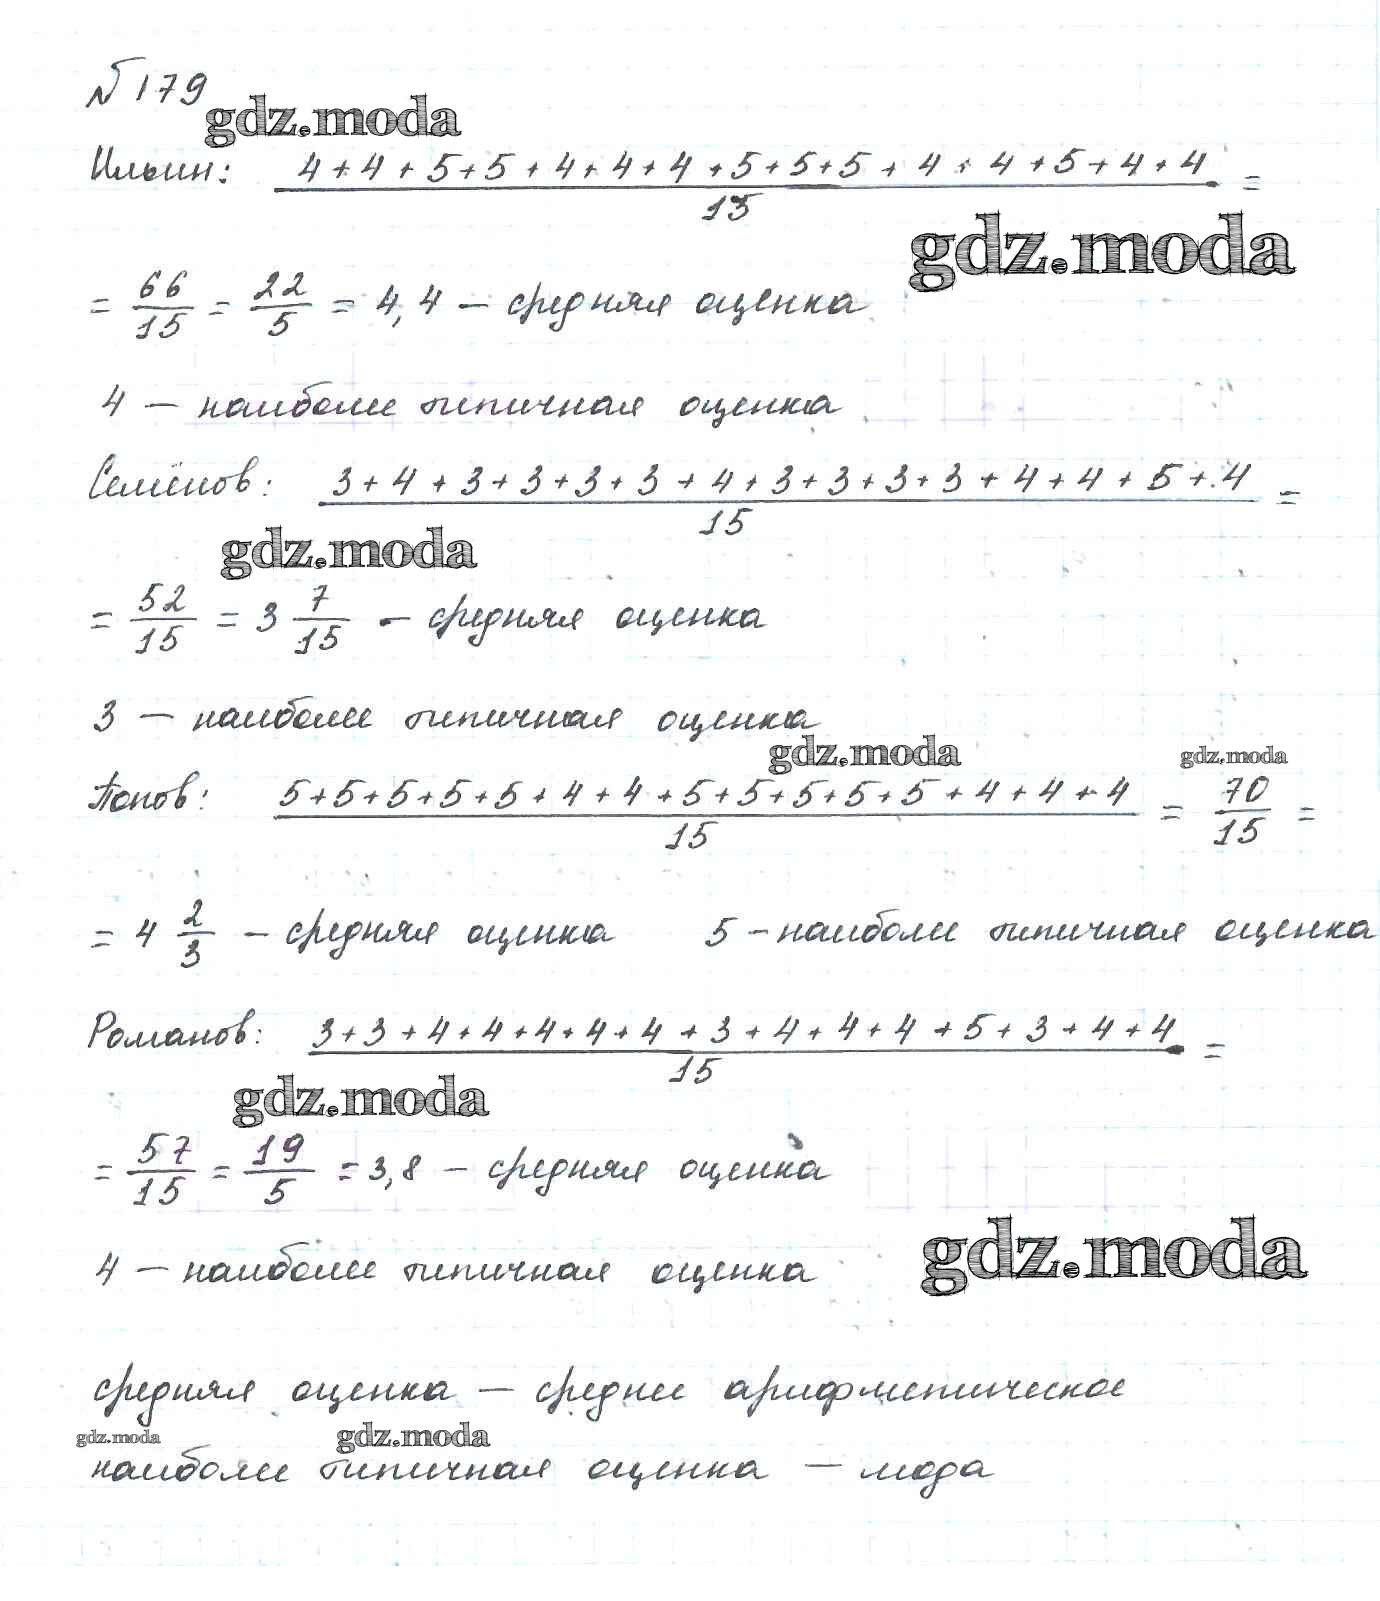 №179
gdz.moda
Ильин: 4+4+5+5+4+4+4+5+5+5+4+4+5+4+4 / 15 =
gdz.moda
= 66/15 = 22/5 = 4,4 – средняя оценка
4 – наиболее типичная оценка
Семёнов: 3+4+3+3+3+3+4+3+3+3+3+4+4+5+4 / 15 =
gdz.moda
= 52/15 = 3 7/15 – средняя оценка
3 – наиболее типичная оценка
gdz.moda gdz.moda
Попов: 5+5+5+5+5+4+4+5+5+5+5+5+4+4+4 / 15 = 70/15 =
= 4 2/3 – средняя оценка 5 – наиболее типичная оценка
Романов: 3+3+4+4+4+4+4+3+4+4+4+5+3+4+4 / 15 =
gdz.moda
= 57/15 = 19/5 = 3,8 – средняя оценка
gdz.moda
4 – наиболее типичная оценка
средняя оценка – среднее арифметическое
gdz.moda gdz.moda
наиболее типичная оценка – мода